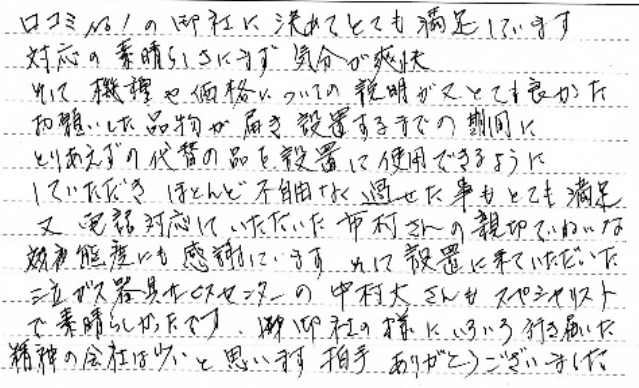 口コミNo!の御社に決めてとても満足しています
対応の素晴らしさにまず気分が爽快
そして機種や価格についての説明がまたとても良かった
お願いした品物が届き設置するまでの期間に
とりあえずの代替の品を設置して使用できるように
していただきほとんど不自由なく過せた事もとても満足
又電話対応していただいた市村さんの親切でていねいな
態度にも感謝しています そして設置に来ていただいた
三立ガス器具サービスセンターの中村大さんもスペシャリスト
で素晴らしかったです、御社の様にいろいろ行き届いた
精神の会社は少いと思います 拍手 ありがとうございました